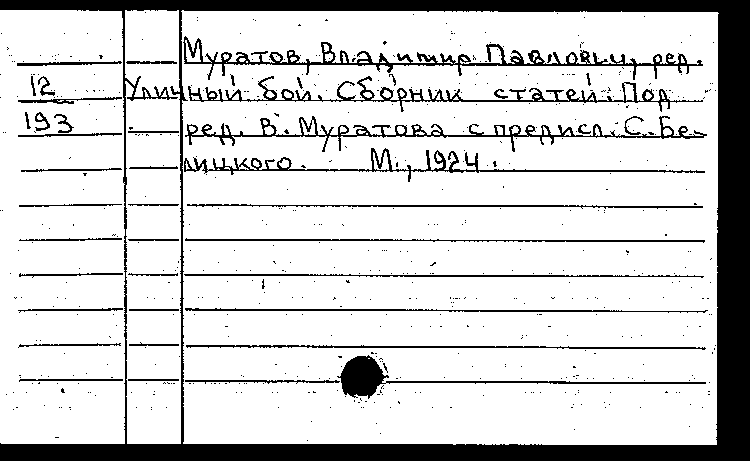 Муратов, Владимир Павлович, ред.
12
Уличный бой. Сборник статей. Под
193
ред. В. Муратова с предисл. С. Бе-
лицкого. М., 1924.